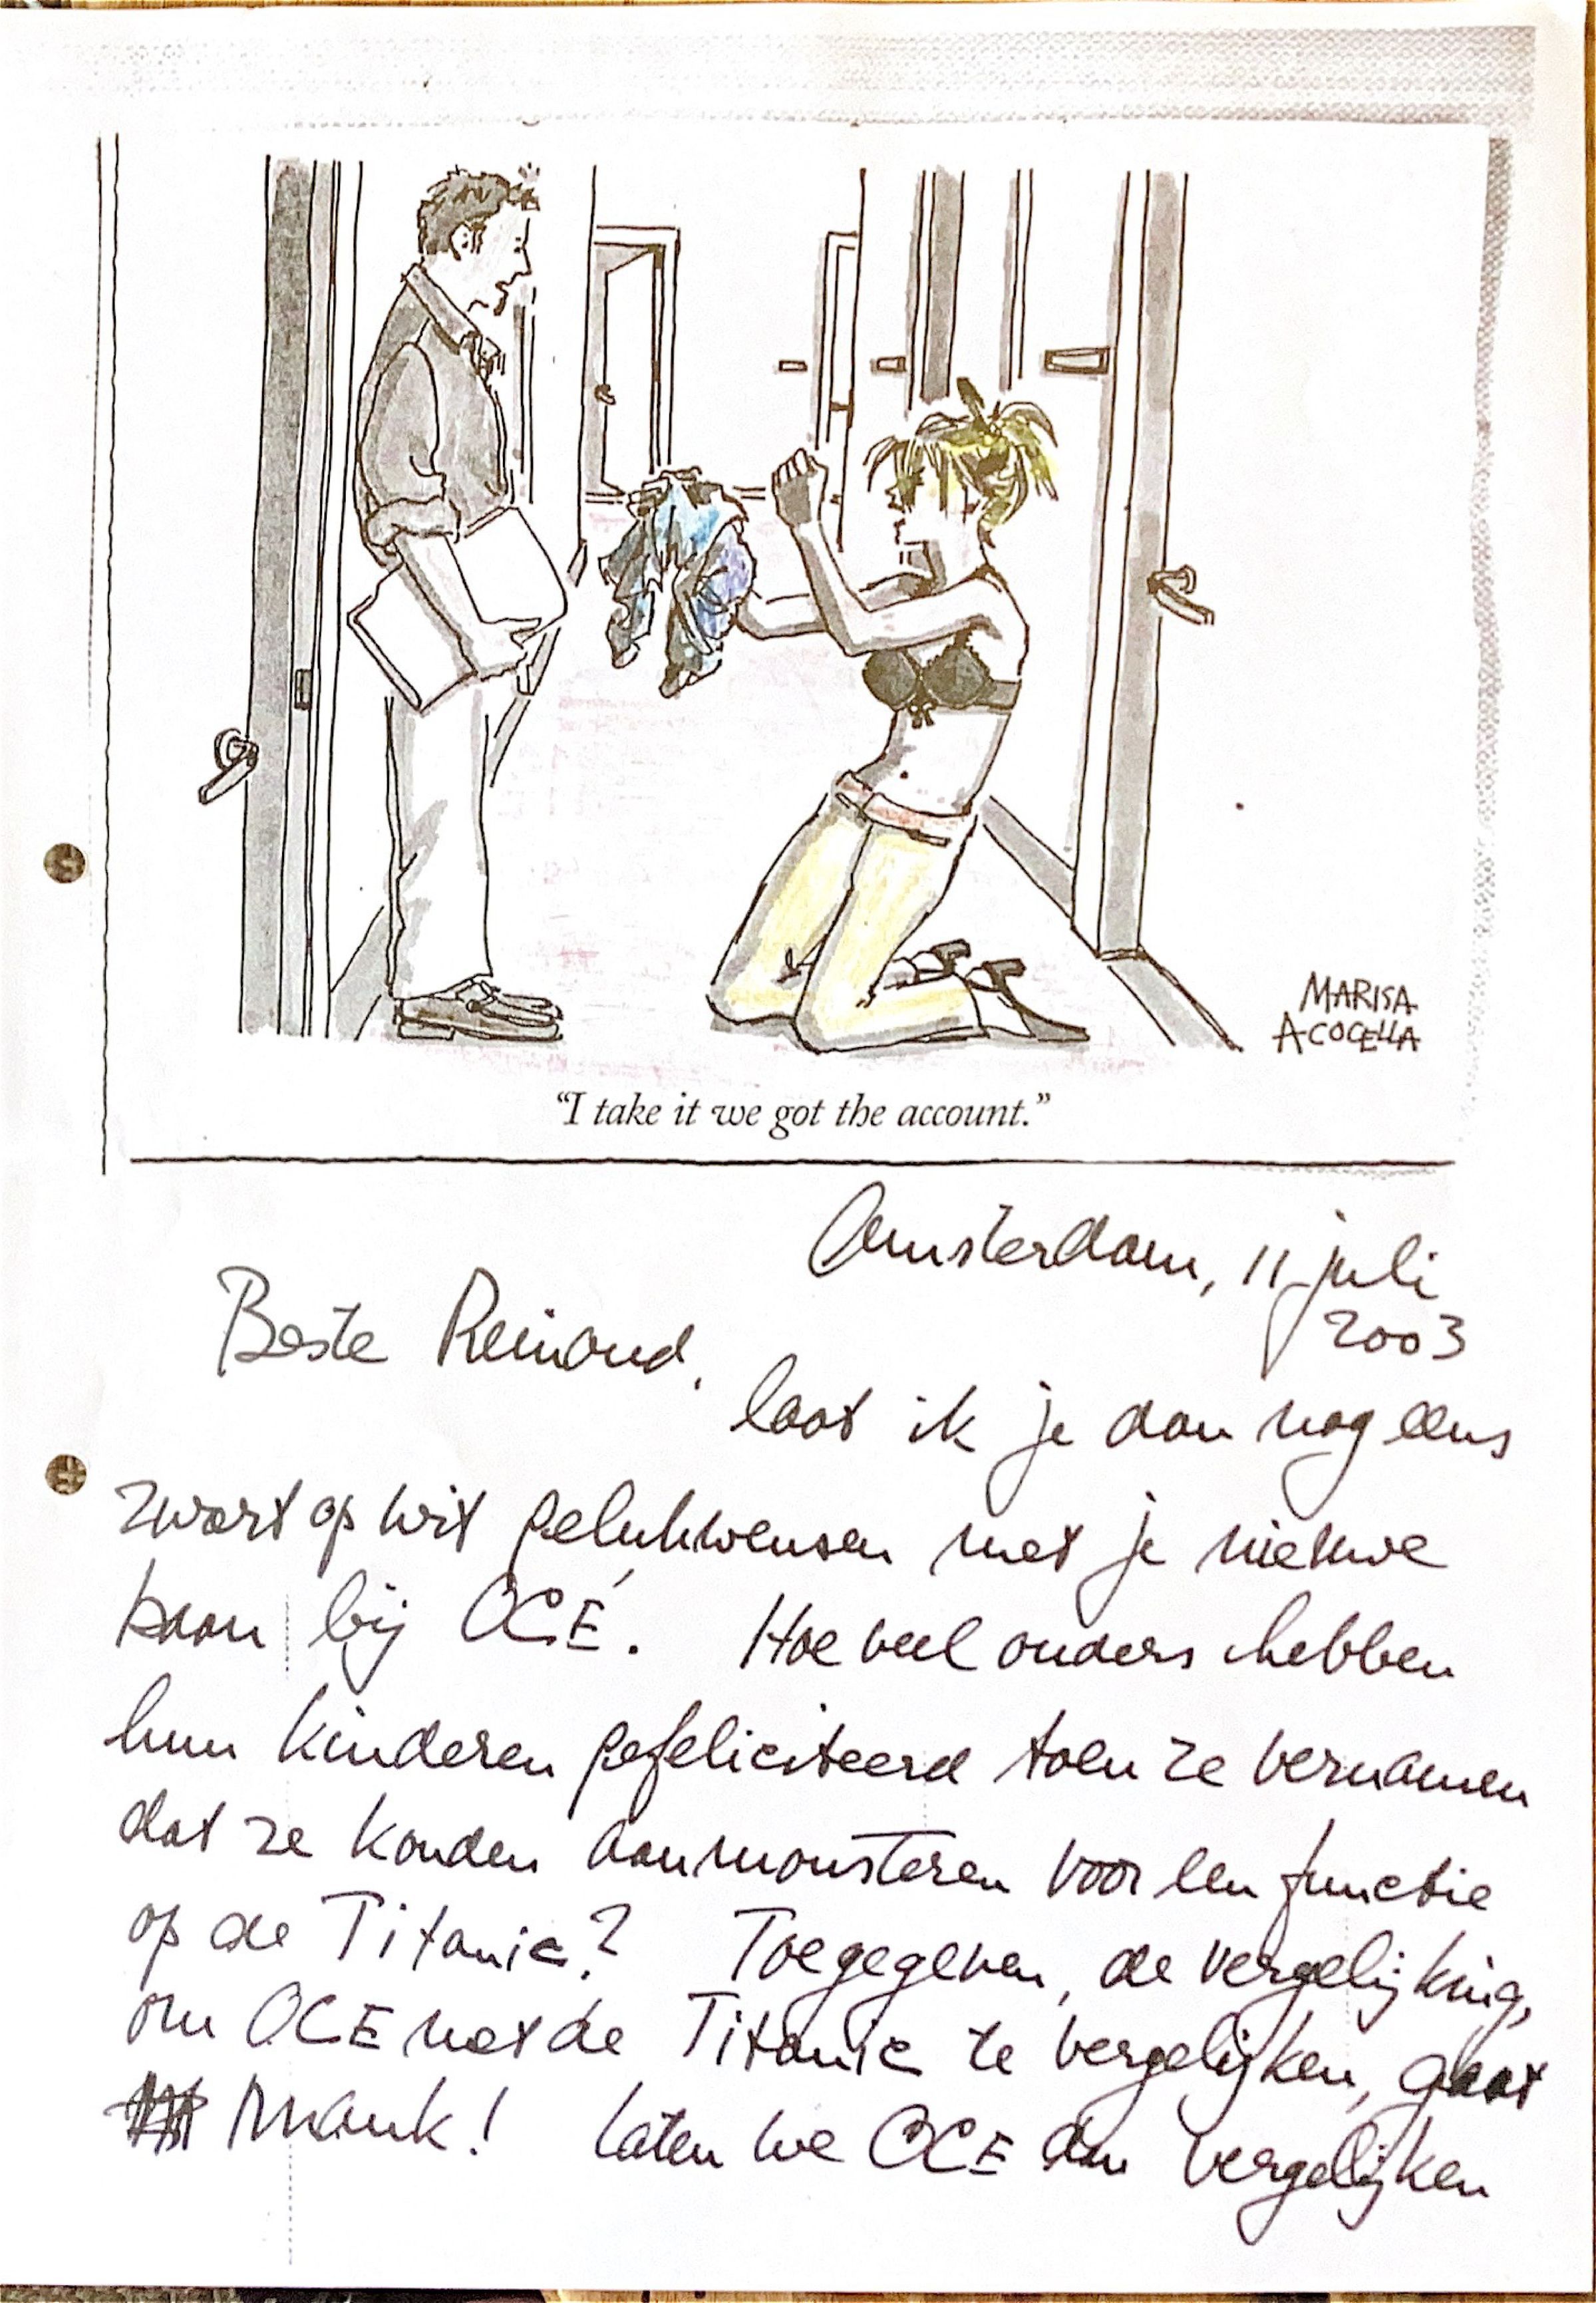 MARISA
ACOCELLA
“I take it we got the account.”
Amsterdam, 11 juli
2003
Beste Reinoud,
laat ik je dan nog eens
zwart op wit gelukwensen met je nieuwe
baan bij OCÉ. Hoeveel ouders hebben
hun kinderen gefeliciteerd toen ze vernamen
dat ze konden aanmonsteren voor een functie
op de Titanic? Toegegeven, de vergelijking,
om OCE met de Titanic te vergelijken, gaat
mank! Laten we OCE dan vergelijken